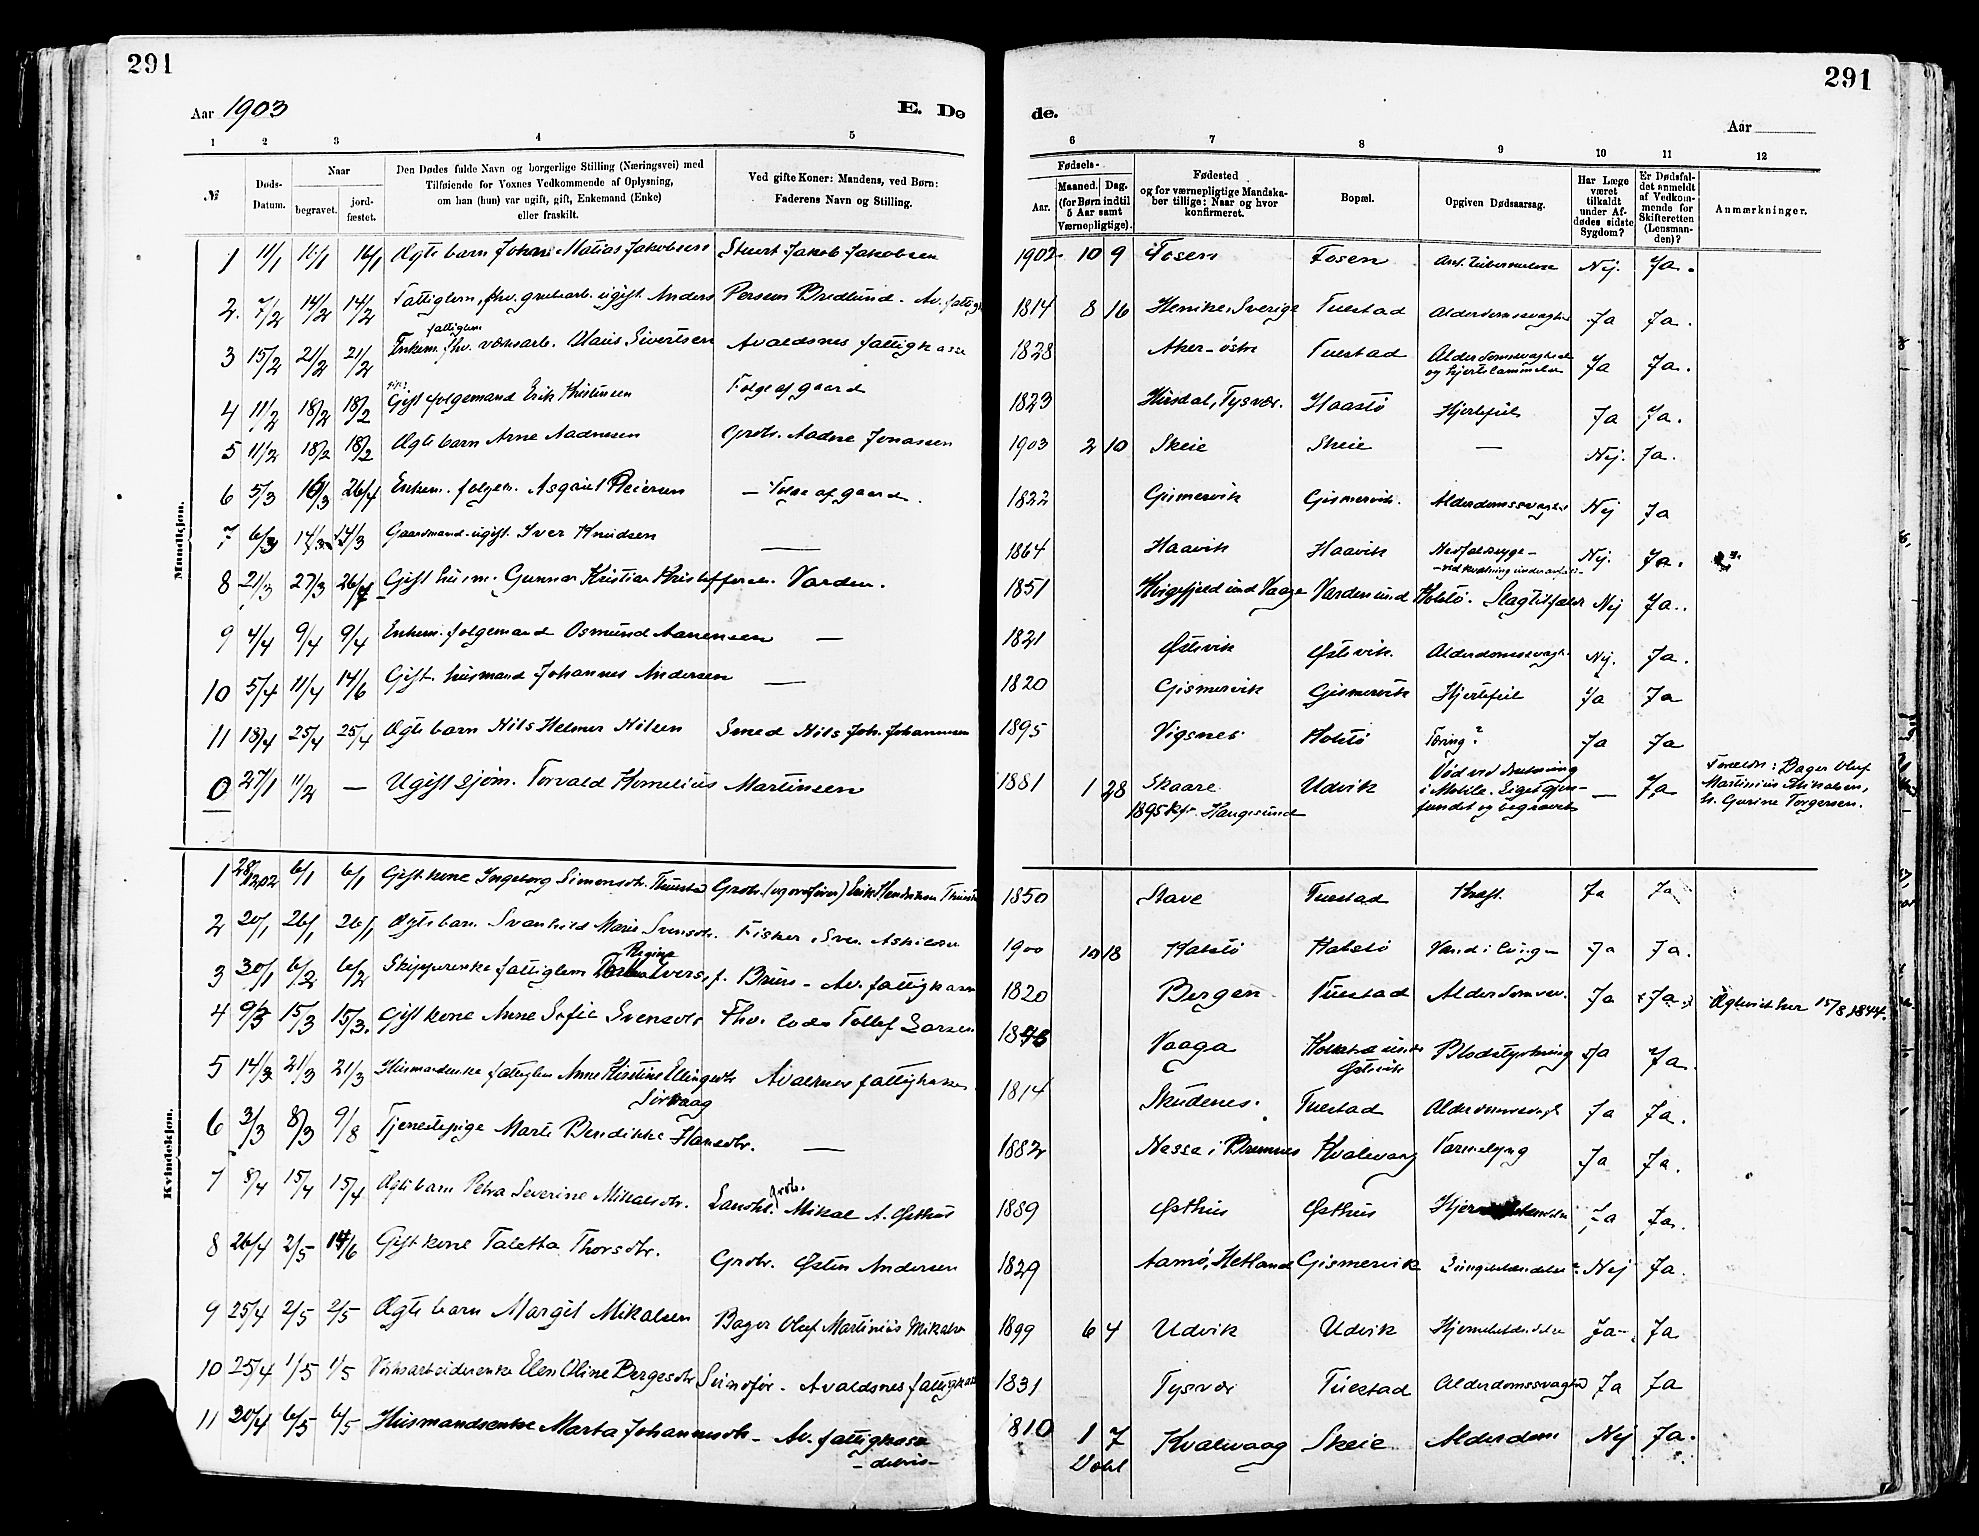 291
291
Aar 1903
E. Dø
de.
Aar
1 2 3 4 5
6 7 8 9 10 11 12
№
Døds-Datum.
Naar
begravet.
jord-fæstet.
Den Dødes fulde Navn og borgerlige Stilling (Næringsvei) med
Tilføiende for Voxnes Vedkommende af Oplysning,
om han (hun) var ugift, gift, Enkemand (Enke)
eller fraskilt.
Ved gifte Koner: Mandens, ved Børn:
Faderens Navn og Stilling.
Fødsels-
Aar.
Maaned. Dag.
(for Børn indtil
5 Aar samt
Værnepligtige).
Fødested
og for værnepligtige Mandska-
ber tillige: Naar og hvor
konfirmeret.
Bopæl.
Opgiven Dødsaarsag.
Har Læge
været
tilkaldt
under Af-
dødes sidste
Sygdom?
Er Dødsfal-
det anmeldt
af Vedkom-
mende for
Skifteretten
(Lensman-
den)?
Anmærkninger.
Mandkjøn.
1 11/1 16/1 16/1 Ægte barn Johan Matias Jakobsen Stuert Jakob Jakobsen 1902 10 9 Fosen Fosen Nej. Ja.
2. 7/2 14/2 14/2 Fattiglem, fhv. grubearb. ugift Anders Persen Bredlund - Av. fattigk 1814 8 16 Sverige Tuestad Alderdomssvaghed Ja Ja.
3 15/2 21/2 21/2 Enkem. fattiglem fhv. verksarb. Claus Sivertsen Avaldsnes fattigkasse 1828 Aker - østre Tuestad Alderdomssvaghed og hjertelammelse Ja Ja.
4 11/2 18/2 18/2 Gift folgemand Erik Kristensen Folge af gaard 1823 Hirsdal, Tysvær. Haastø Hjertefeil Ja Ja.
5 11/2 18/2 18/2 Ægte barn Arne Aadnesen Grbr. Aadne Jonassen 1903 2 10 Skeie Skeie — Nej. Ja.
6 5/3 16/3 26/4 Enkem. folgem. Asgaut Peiersen — Folge af gaard. 1822 Gismervik Gismervik. Alderdomssvaghed Nej Ja
7 6/3 14/3 14/3 Gaardmand ugift. Iver Knudsen — 1864 Haavik Haavik Nedfaldssyge - - vid kvælning under anfald - Nej. Ja.
8 21/3 27/3 26/4 Gift husm. Gunnar Kristian Kristoffersen Varden. 1851 Kvigefjeld und Vaage Varden und Kolstø. Slagtilfælde Nej Ja.
9 4/4 9/4 9/4 Enkem. folgemand Osmund Aanensen — 1821 Østivik Østivik. Alderdomssvagh. Nej. Ja.
10 5/4 11/4 14/6 Gift. husmand Johannes Andersen — 1820 Gismervik Gismervik Hjertefeil Ja Ja
11 18/4 25/4 25/4 Ægte barn Nils Helmer Nilsen Smed Nils Joh. Johannesen 1895 Vigsnes Kolstø Tæring? Ja Ja
0 27/1 11/2 — Ugift sjøm. Torvald Kornelius Martinsen 1881 1 28 Skaare 1895 Kfr. Haugesund Udvik Død ved drukning i Mobile. Liget gjen-fundet og begravet — Ja Forældr: Bager Oluf Martinius Mikalsen, h. Gurine Torgersen.
Kvindekjøn.
1 28/12 02 6/1 6/1 Gift kone Ingeborg Simonsdr. Tuestad Grbr. (og ordfører) Erik Hendriksen Tuestad 1850 Stave Tuestad Kræft. Ja Ja
2 20/1 26/1 26/1 Ægte barn Svanhild Marie Svensdr. Fisker Sven Askilsen 1900 10 18 Kolstø Kolstø Vand i lunge Ja Ja.
3 30/1 6/2 6/2 Skipperenke fattiglem Regine Ivers, f. Bruun - Av. fattigkasse 1820 Bergen Tuestad Alderdomssv. Ja Ja. Ægteviet her 15/8 1844.
4 9/3 15/3 15/3. Gift kone Anne Sofie Svensdtr Fhv. lods Tollef Larsen Vaaga Østivik Blodstyrtning Ja Ja.
5 14/3 21/3 21/3 Husmandenke fattiglem Anne Kristine Ellingsdtr Avaldsnes fattigkasse. 1814 Skudenes. Tuestad Alderdomssvagh Ja Ja.
6 3/3 8/3 9/8 Tjenestepige Marte Bendikke Hansdtr. Sørvaag — 1882 Nessa i Bremnes Kvalevaag Tarmslyng Ja Ja.
7 8/4 15/4 15/4 Ægte barn Petra Severine Mikalsdtr. Landh. grbr. Mikal A. Østhus 1889 Østhus Østhus Ja Ja.
8 26/4 2/5 14/6 Gift kone Taletta Thorsdtr. Grbr. Østen Andersen 1829 Aamø, Hetland Gismervik Lungebetændelse? Nej Ja.
9 25/4 2/5 2/5 Ægte barn Margit Mikalsen Bager Oluf Martinius Mikalsen 1899 6 4 Udvik Udvik Hjernebetændelse Ja Ja
10 25/4 1/5 1/5 Verksarbeiderenke Elen Oline Bergesdtr Svindfør. - Avaldsnes fattigkasse 1831 Tysvær Tuestad Alderdomssvaghed Ja Ja
11 20/4 6/5 6/5 Husmandsenke Marta Johannesdtr - Av. fattigkasse - delvis - 810 1 7 Kvalevaag Skeie Alderdom Nej Ja.